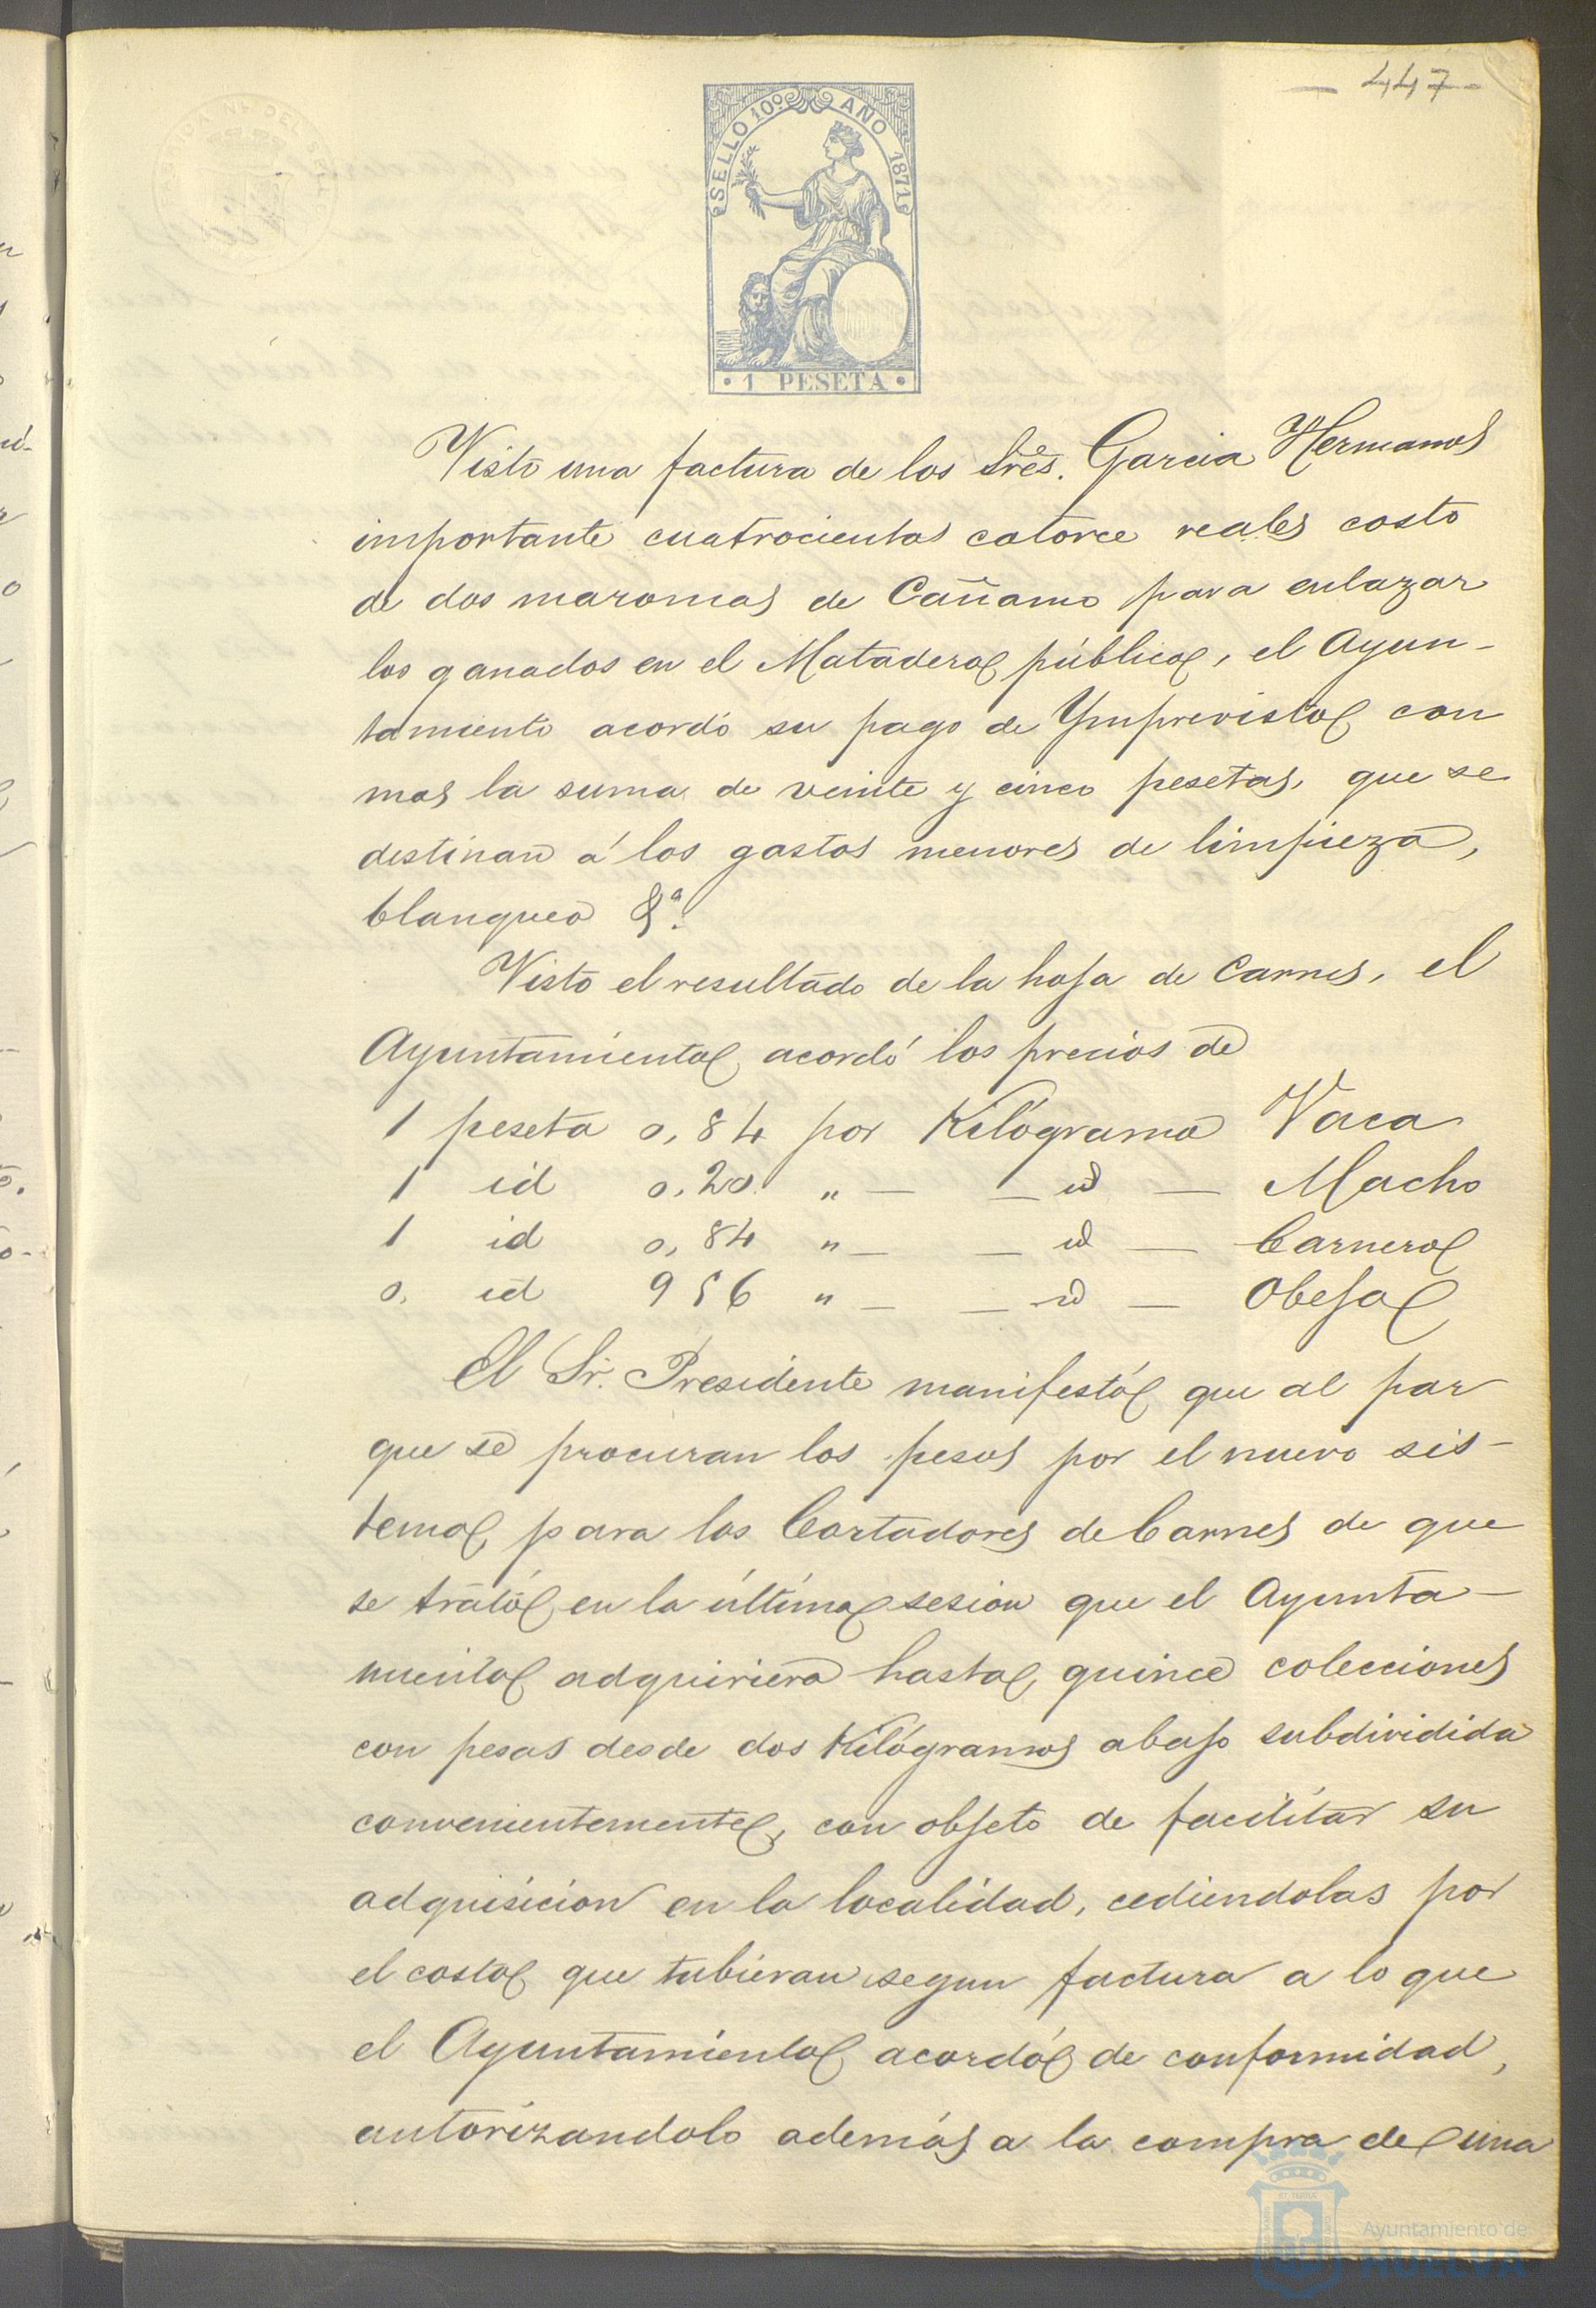 - 447 -
SELLO 10º AÑO 1871
· 1 PESETA ·
Visto una factura de los Sres. Garcia Hermanos
importante cuatrocientos catorce reales costo
de dos maromas de Cáñamo para enlazar
los ganados en el Matadero público, el Ayun-
tamiento acordó su pago de Ymprevistos con
mas la suma de veinte y cinco pesetas, que se
destinan á los gastos menores de limpieza,
blanqueo &ª.
Visto el resultado de la hoja de Carnes, el
Ayuntamiento acordó los precios de
1 peseta 0,84 por Kilógramo Vaca
1 id 0,20 " — — id — Macho
1 id 0,84 " — — id — Carnero
0, id 956 " — — id — Obeja
El Sr. Presidente manifestó que al par
que se procuran los pesos por el nuevo sis-
tema para los Cortadores de Carnes de que
se trató en la última sesion que el Ayunta-
miento adquiriera hasta quince colecciones
con pesas desde dos Kilógramos abajo subdividida
convenientemente, con objeto de facilitar su
adquisicion en la localidad, cediendolas por
el costo que tubieran segun factura a lo que
el Ayuntamiento acordó de conformidad,
autorizandolo además a la compra de una
Ayuntamiento de
HUELVA